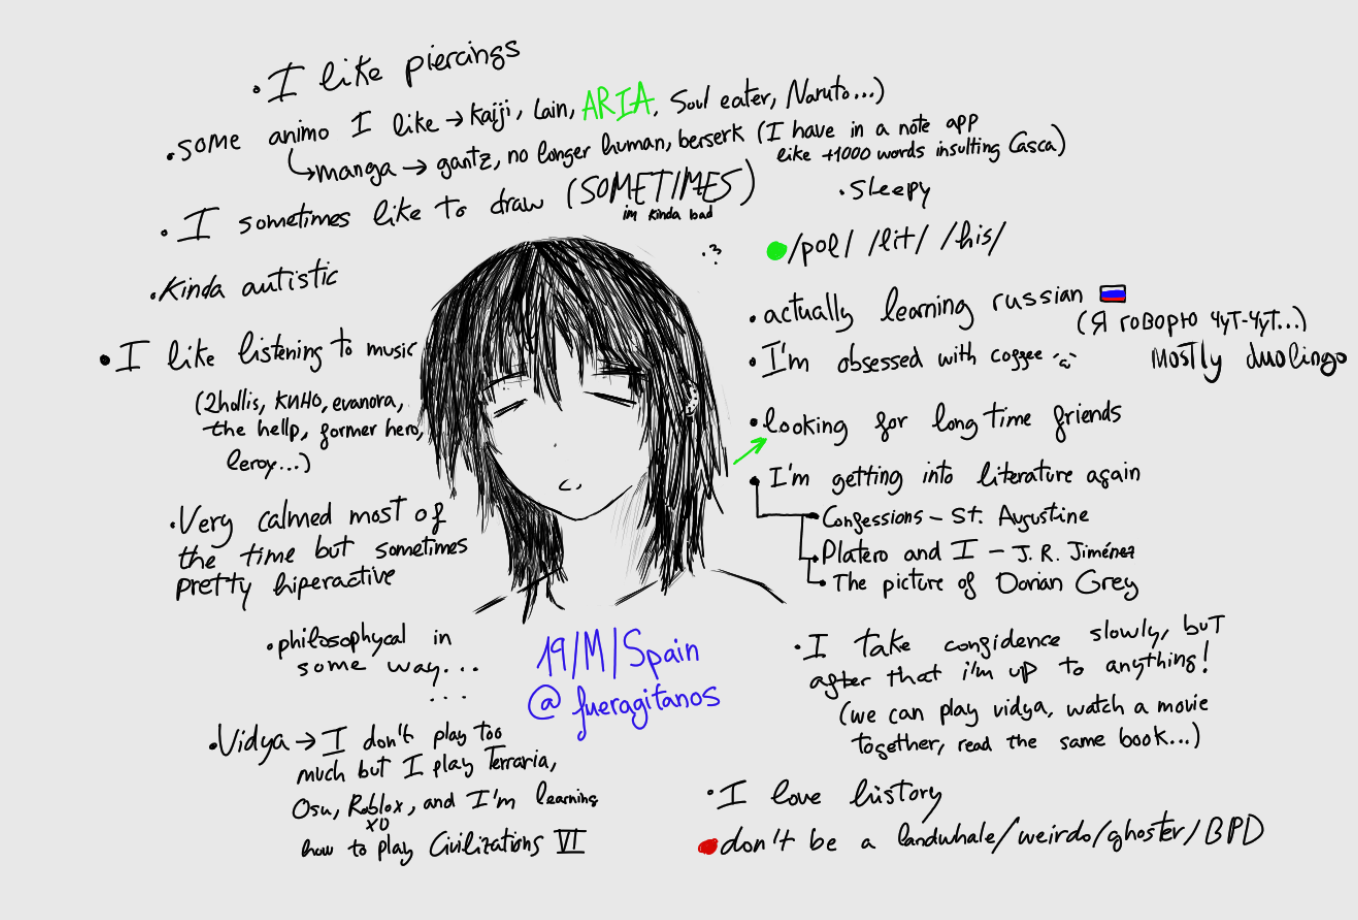 • I like piercings
• some animo I like → kaiji, Lain, ARIA, Soul eater, Naruto...)
↳ manga → gantz, no longer human, berserk (I have in a note app
like +1000 words insulting Casca)
• I sometimes like to draw (SOMETIMES)
im kinda bad
• sleepy
• Kinda autistic
.3?
/pol/ /lit/ /his/
• actually learning russian
(Я говорю чут-чут...)
mostly duolingo
• I like listening to music
(2hollis, КИНО, evanora,
the hellp, former hero,
leroy...)
• I'm obsessed with coffee
• looking for long time friends
• I'm getting into literature again
• Confessions - St. Augustine
• Platero and I - J. R. Jiménez
• The picture of Dorian Grey
• Very calmed most of
the time but sometimes
pretty hiperactive
• philosophycal in
some way...
...
19/M/Spain
@fueragitanos
• I take confidence slowly, but
after that i'm up to anything!
(we can play vidya, watch a movie
together, read the same book...)
• Vidya → I don't play too
much but I play Terraria,
Osu, Roblox, and I'm learning
XD
how to play Civilizations VI
• I love history
don't be a landwhale/weirdo/ghoster/BPD